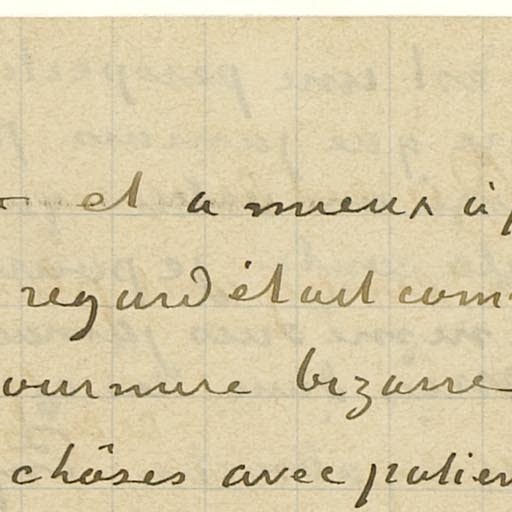 et a mieux à
regard était com
ournure bizarre
chôses avec patien